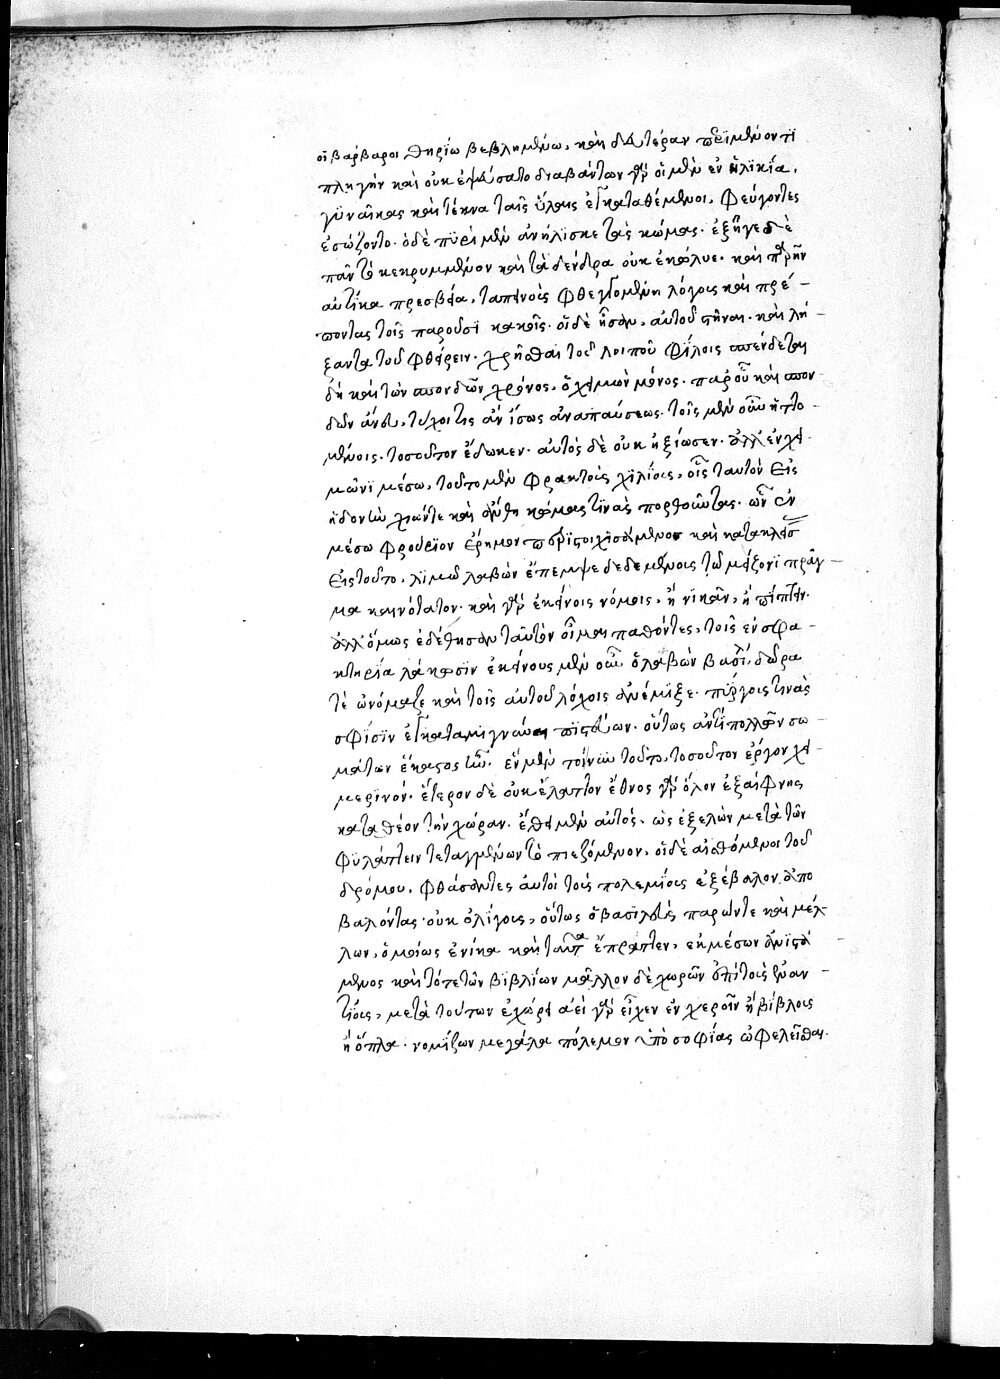 οἱ βάρβαροι θηρίω βεβλημένω, καὶ δευτέραν περιμένοντι
πληγὴν καὶ οὐκ ἐψεύσατο διαβάντων γὰρ οἱ μὲν ἐν ἡλικία,
γυναῖκας καὶ τέκνα ταῖς ὕλαις ἐγκαταθέμενοι, φεύγοντες
ἐσώζοντο. ὁ δὲ πυρὶ μὲν ἀνήλισκε τὰς κώμας. ἐξῆγε δὲ
πᾶν τὸ κεκρυμμένον καὶ τὰ δένδρα οὐκ ἐκώλυε. καὶ παρῆν
αὐτίκα πρεσβεία, ταπεινοῖς φθεγγομένη λόγοις καὶ πρέ-
ποντας τοῖς παροῦσι κακοῖς. οἱ δὲ ἦσαν, αὐτοῦ στῆναι. καὶ λή-
ξαντα τοῦ φθείρειν. χρῆσθαι τοῦ λοιποῦ φίλοις σπένδεται
δὴ καὶ τῶν σπονδῶν χρόνος, ὁ χειμὼν μόνος. παρ' οὗ καὶ σπον-
δῶν ἄνευ, τύχοι τις ἂν ἴσως ἀναπαύσεως. τοῖς μὲν οὖν ἡττω-
μένοις. τοσοῦτον ἔδωκεν. αὐτὸς δὲ οὐκ ἠξίωσεν. ἀλλ' ἐν χει-
μῶνι μέσω, τοῦτο μὲν φρακτοὺς χιλίους, οἷς ταυτὸν εἰς
ἡδονὴν χιών τε καὶ ἄνθη κώμας τινὰς πορθοῦντας. ὧν ἐν
μέσω φρούριον ἔρημον περιστοιχισάμενος καὶ κατακλείσας
εἰς τοῦτο, λιμῶ λαβὼν ἔπεμψε δεδεμένους τῶ μείζονι πρᾶγ-
μα καινότατον. καὶ γὰρ ἐκείνοις νόμος, ἢ νικᾶν, ἢ πίπτειν.
ἀλλ' ὅμως ἐδέθησαν ταὐτὸν οἶμαι παθόντες, τοῖς ἐν σφα-
κτηρία λάκωσιν ἐκείνους μὲν οὖν ὁ λαβὼν βασιλεὺς, δῶρά
τε ὠνόμαζε καὶ τοῖς αὑτοῦ λόχοις ἀνέμιξε. πύργους τινὰς
σφίσιν ἐγκαταμιγνύναι πιστεύων. οὕτως ἀντὶ πολλῶν σω-
μάτων ἕκαστος ἦν. ἓν μὲν τοίνυν τοῦτο, τοσοῦτον ἔργον χει-
μερινόν. ἕτερον δὲ οὐκ ἔλαττον ἔθνος γὰρ ὅλον ἐξαίφνης
καταθέον τὴν χώραν. ἔθει μὲν αὐτὸς. ὡς ἐξελῶν μετὰ τῶν
φυλάττειν τεταγμένων τὸ πιεζόμενον, οἱ δὲ αἰσθόμενοι τοῦ
δρόμου, φθάσαντες αὐτοὶ τοὺς πολεμίους ἐξέβαλον ἀπο
βαλόντας οὐκ ὀλίγους, οὕτως ὁ βασιλεὺς παρών τε καὶ μέλ-
λων, ὁμοίως ἐνίκα καὶ ταῦτα ἔπραττεν, ἐκ μέσων ἀνιστά
μενος καὶ τότε τῶν βιβλίων μᾶλλον δὲ χωρῶν ἐπὶ τοὺς ἐναν-
τίους, μετὰ τούτων ἐχώρει ἀεὶ γὰρ εἶχεν ἐν χεροῖν ἢ βίβλους
ἢ ὅπλα. νομίζων μεγάλα πόλεμον ὑπὸ σοφίας ὠφελεῖσθαι.